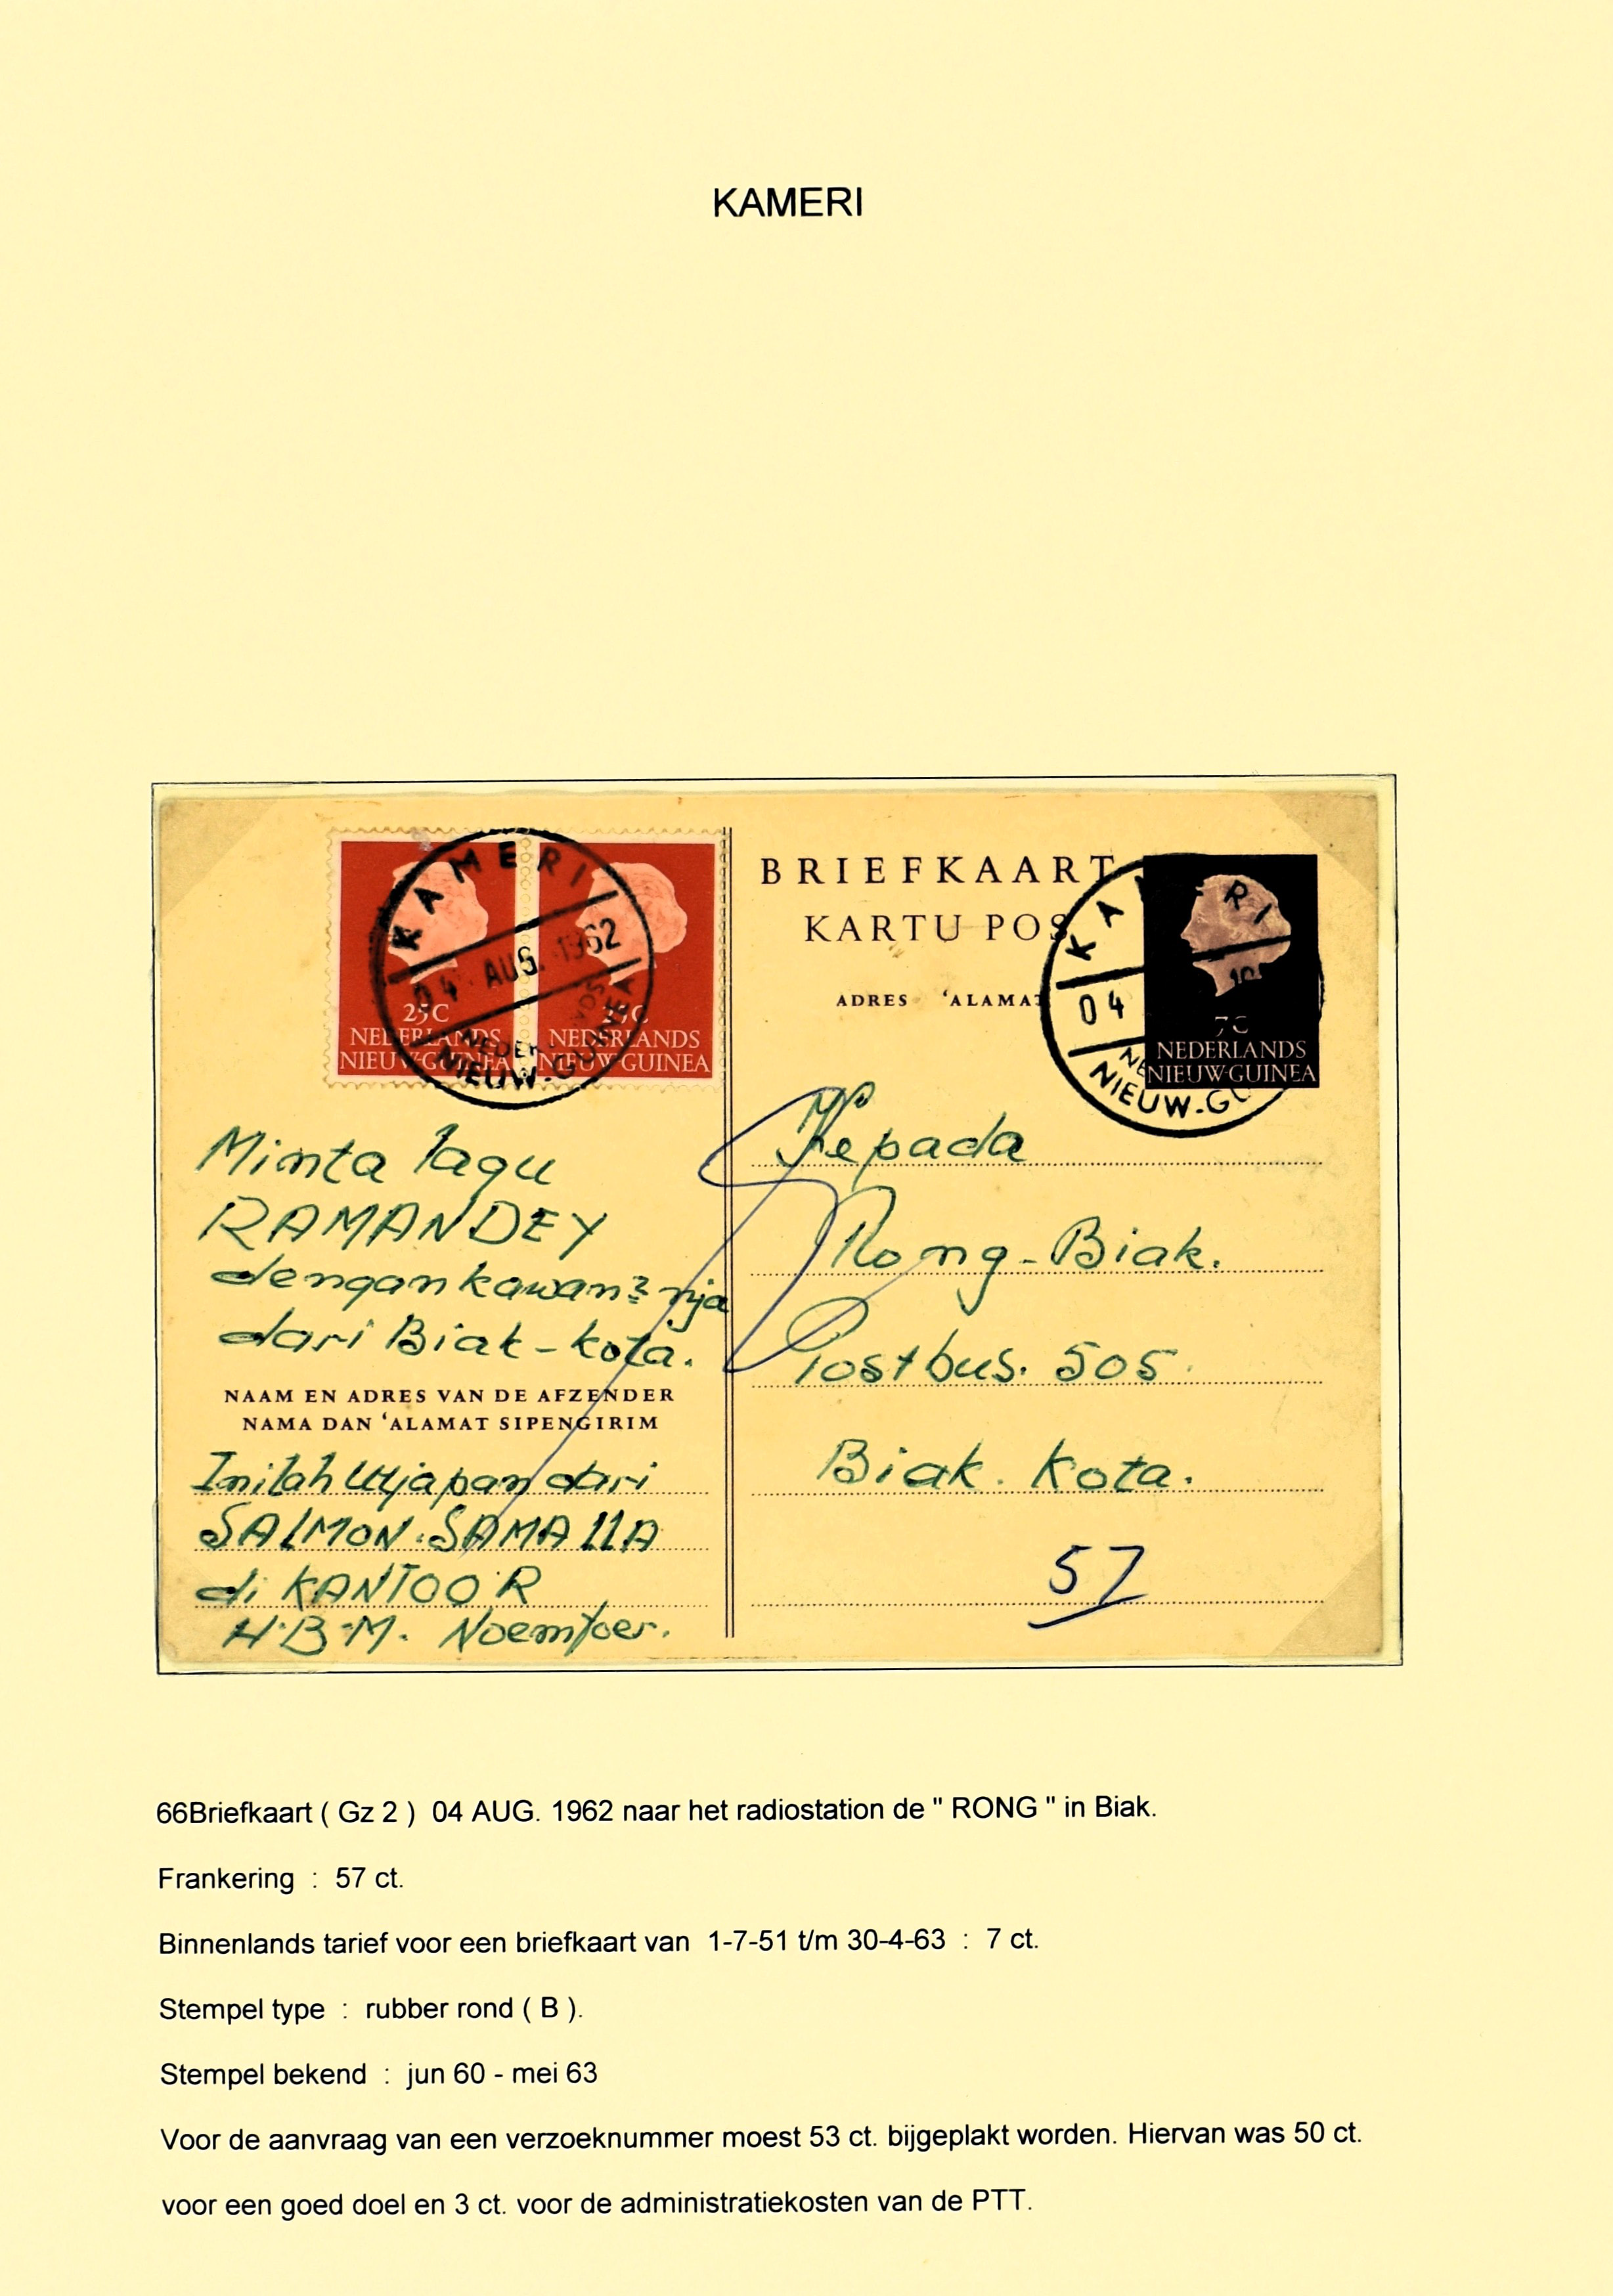 KAMERI
KAMERI
04 AUG. 1962
NIEUW-GUINEA
25C
NEDERLANDS
NIEUW-GUINEA
25C
NEDERLANDS
NIEUW-GUINEA
BRIEFKAART
KARTU POS
ADRES 'ALAMAT
04
7C
NEDERLANDS
NIEUW-GUINEA
Minta lagu
RAMANDEY
dengan kawan2 nja
dari Biak-kota.
NAAM EN ADRES VAN DE AFZENDER
NAMA DAN 'ALAMAT SIPENGIRIM
Inilah Utjapan dari
SALMON.SAMALLA
di KANTOOR
H.B.M. Noemfoer.
Kepada
Rong-Biak.
Postbus. 505.
Biak. Kota.
57
66Briefkaart ( Gz 2 ) 04 AUG. 1962 naar het radiostation de " RONG " in Biak.
Frankering : 57 ct.
Binnenlands tarief voor een briefkaart van 1-7-51 t/m 30-4-63 : 7 ct.
Stempel type : rubber rond ( B ).
Stempel bekend : jun 60 - mei 63
Voor de aanvraag van een verzoeknummer moest 53 ct. bijgeplakt worden. Hiervan was 50 ct.
voor een goed doel en 3 ct. voor de administratiekosten van de PTT.